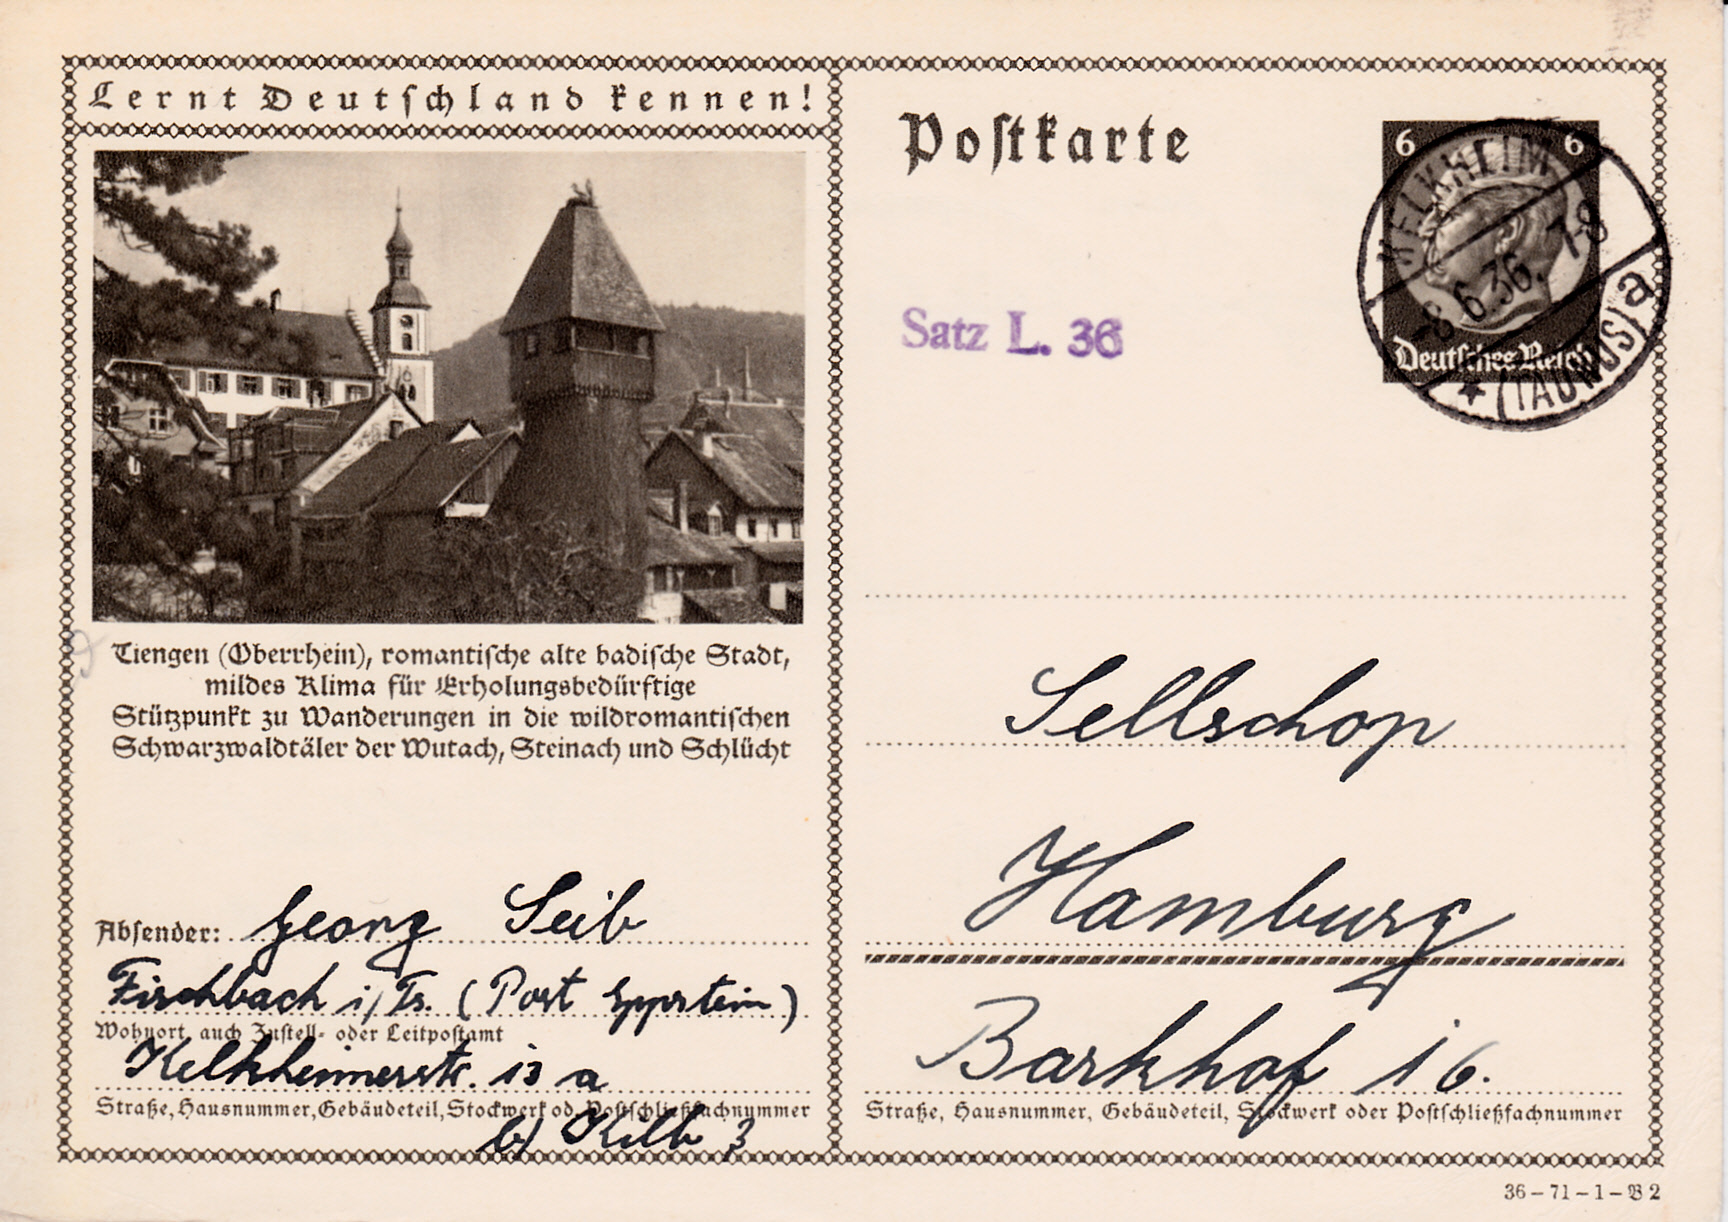 Lernt Deutschland kennen!
Tiengen (Oberrhein), romantische alte badische Stadt,
mildes Klima für Erholungsbedürftige
Stützpunkt zu Wanderungen in die wildromantischen
Schwarzwaldtäler der Wutach, Steinach und Schlücht
Absender: Georg Seib
Fischbach i/Ts. (Post Eppstein)
Wohnort, auch Zustell- oder Leitpostamt
Kelkheimerstr. 13 a
Straße, Hausnummer, Gebäudeteil, Stockwerk od. Postschließfachnummer
b/
Postkarte
6 6
Deutsches Reich
KELKHEIM
-8.6.36. 7-8
* (TAUNUS) a
Satz L. 36
Sellschop
Hamburg
Barkhof 16.
Straße, Hausnummer, Gebäudeteil, Stockwerk oder Postschließfachnummer
36-71-1-B 2